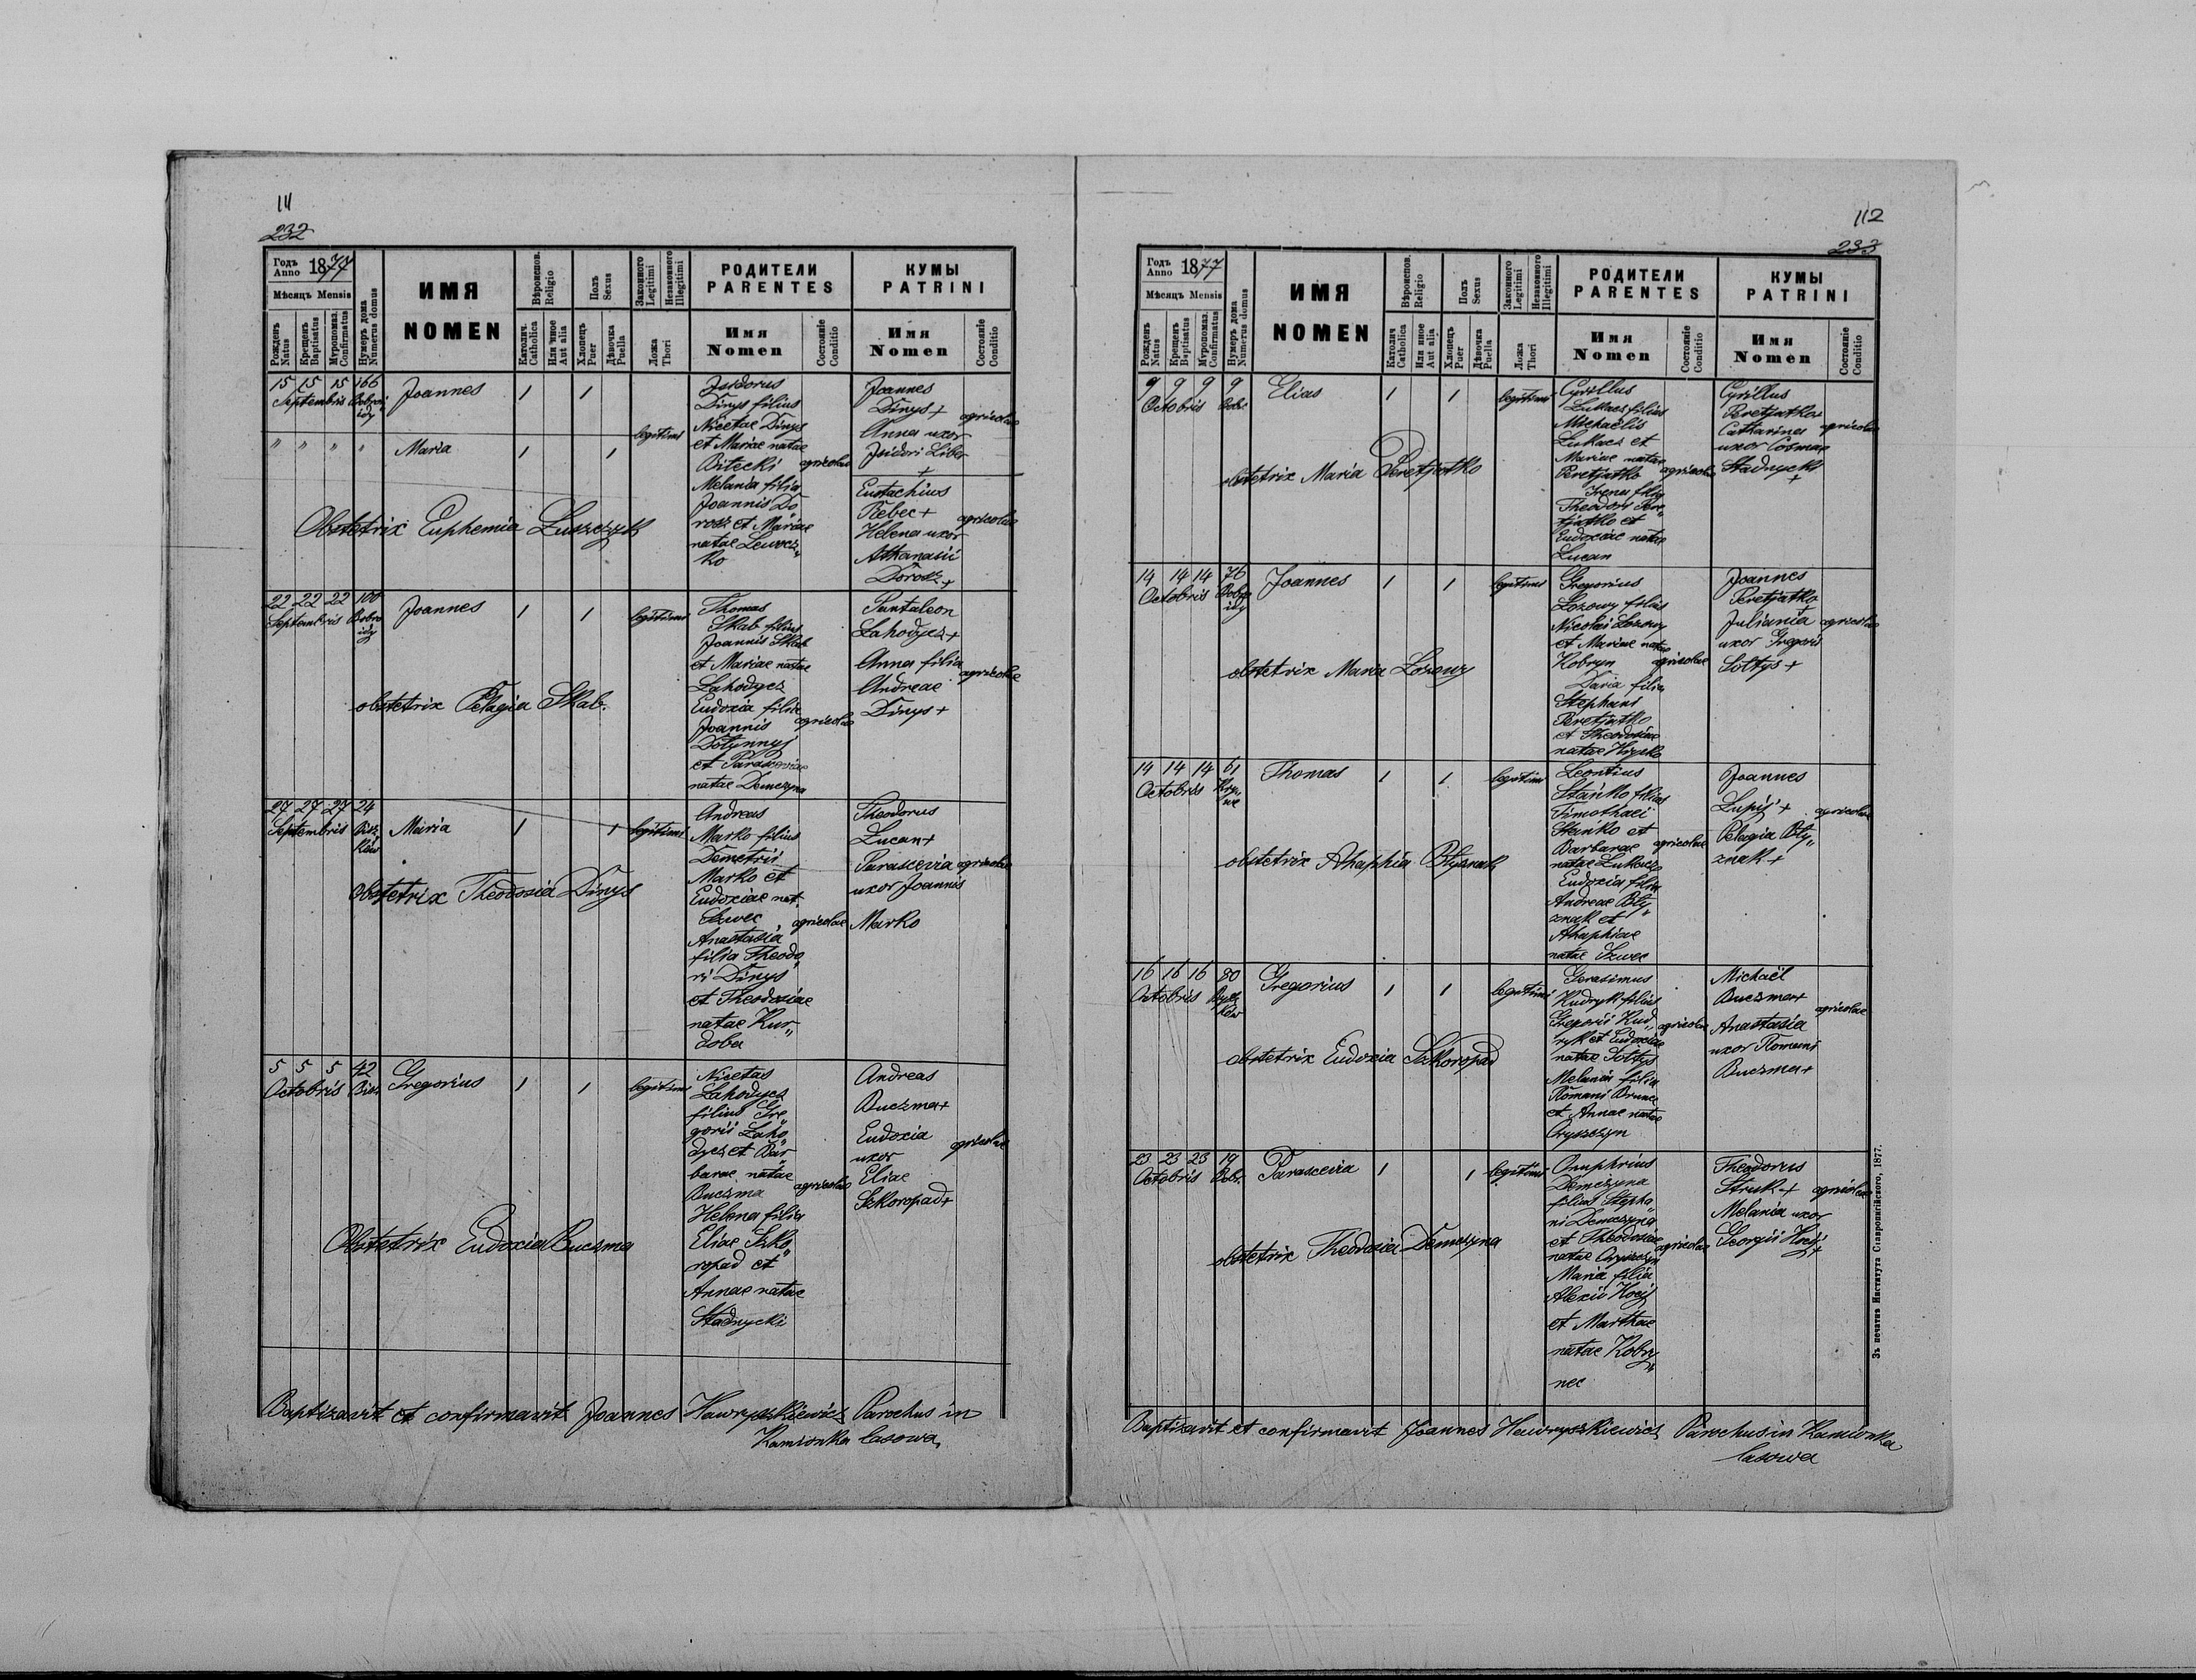 111
232
Годъ Anno 1877
Мѣсяцъ Mensis
Рожденъ Natus
Крещенъ Baptisatus
Мѵропомаз. Confirmatus
Нумеръ дома Numerus domus
ИМЯ
NOMEN
Вѣроисповѣ. Religio
Католич. Catholica
Или иное Aut alia
Полъ Sexus
Хлопецъ Puer
Дѣвочка Puella
Законного Legitimi
Незаконного Illegitimi
Ложа Thori
РОДИТЕЛИ
PARENTES
Имя
Nomen
Состояніе Conditio
КУМЫ
PATRINI
Имя
Nomen
Состояніе Conditio
15 15 15 166
Septembris Dobro
idy
Joannes 1 1
" " " "
Maria 1 1
legitimi
Isidorus
Dinys filius
Nicetae Dinys
et Mariae natae
Bitecki agricolae
Melania filia
Joannis Do
rosz et Mariae
natae Lewocz
ko
Joannes
Dinys +
agricolae
Anna uxor
Isidori Liber
+
Eustachius
Rebec +
agricolae
Helena uxor
Athanasii
Dorosz +
Obstetrix Euphemia Luszczyk
22 22 22 100
Septembris Dobro
idy
Joannes 1 1 legitimi
Thomas
Skab filius
Joannis Skab
et Mariae natae
Lahodycz
Eudoxia filia
Joannis agricolae
Dolynnyj
et Parasceviae
natae Demczyna
Pantaleon
Lahodycz +
Anna filia
agricolae
Andreae
Dinys +
obstetrix Pelagia Skab.
27 27 27 24
Septembris
Maria 1 1 legitimi
Andreas
Marko filius
Demetrii
Marko et
Eudoxiae nat.
Szwec agricolae
Anastasia
filia Theodo
ri Dinys
et Theodosiae
natae Kur
doba
Theodorus
Lucan +
Parascevia agricolae
uxor Joannis
Marko
Obstetrix Theodosia Dinys
5 5 5 42
Octobris
Gregorius 1 1 legitimi
Nicetas
Lahodycz
filius Gre
gorii Laho
dycz et Bar
barae natae
Buczma agricolae
Helena filia
Eliae Szko
ropad et
Annae natae
Stadnycki
Andreas
Buczma +
Eudoxia
agricolae
uxor
Eliae
Szkoropad +
Obstetrix Eudoxia Buczma
Baptizavit et confirmavit Joannes Hawryszkiewicz Parochus in
Kamionka lasowa
112
233
Годъ Anno 1877
Мѣсяцъ Mensis
Рожденъ Natus
Крещенъ Baptisatus
Мѵропомаз. Confirmatus
Нумеръ дома Numerus domus
ИМЯ
NOMEN
Вѣроисповѣ. Religio
Католич Catholica
Или иное Aut alia
Полъ Sexus
Хлопецъ Puer
Дѣвочка Puella
Законного Legitimi
Незаконного Illegitimi
Ложа Thori
РОДИТЕЛИ
PARENTES
Имя
Nomen
Состояніе Conditio
КУМЫ
PATRINI
Имя
Nomen
Состояніе Conditio
9 9 9 9
Octobris Dobr.
Elias 1 1 legitimi
Cyrillus
Lukacz filius
Michaëlis
Lukacz et
Mariae natae
Peretjatko agricolae
Irena filia
Theodori Pere
tjatko et
Eudoxiae natae
Lucan
Cyrillus
Peretjatko +
Catharina agricolae
uxor Cosmae
Stadnycki
+
obstetrix Maria Peretjatko
14 14 14 76
Octobris Dobro
idy
Joannes 1 1 legitimi
Gregorius
Lozowy filius
Nicolai Lozowy
et Mariae natae
Kobryn agricolae
Daria filia
Stephani
Peretjatko
et Theodosiae
natae Hrycko
Joannes
Peretjatko
+
Juliania agricolae
uxor Gregorii
Soltys +
obstetrix Maria Lozowy
14 14 14 61
Octobris
Thomas 1 1 legitimi
Leontius
Stańko filius
Timothaei
Stańko et
Barbarae agricolae
natae Lukacz
Eudoxia filia
Andreae Bły
znak et
Ahaphiae
natae Szwec
Joannes
Lupij +
agricolae
Pelagia Bły
znak +
obstetrix Ahaphia Błyznak
16 16 16 80
Octobris
Gregorius 1 1 legitimi
Gerasimus
Kudryk filius
Gregorii Kud
agricolae
ryk et Eudoxiae
natae Soltys
Melania filia
Romani Brunec
et Annae natae
Oryszczyn
Michaël
Buczma +
agricolae
Anastasia
uxor Romani
Buczma +
obstetrix Eudoxia Szkoropad
23 23 23 19
Octobris Dobr.
Parascevia 1 1 legitimi
Onuphrius
Demczyna
filius Stepha
ni Demczyna
et Theodosiae
natae Oryszczyn agricolae
Maria filia
Alexii Kocij
et Marthae
natae Kobry
nec
Theodorus
Struk + agricolae
Melania uxor
Georgii Kocij
+
obstetrix Theodosia Demczyna
Baptizavit et confirmavit Joannes Hawryszkiewicz Parochus in Kamionka
lasowa
Зъ печатнѣ Института Ставропигійского, 1877.